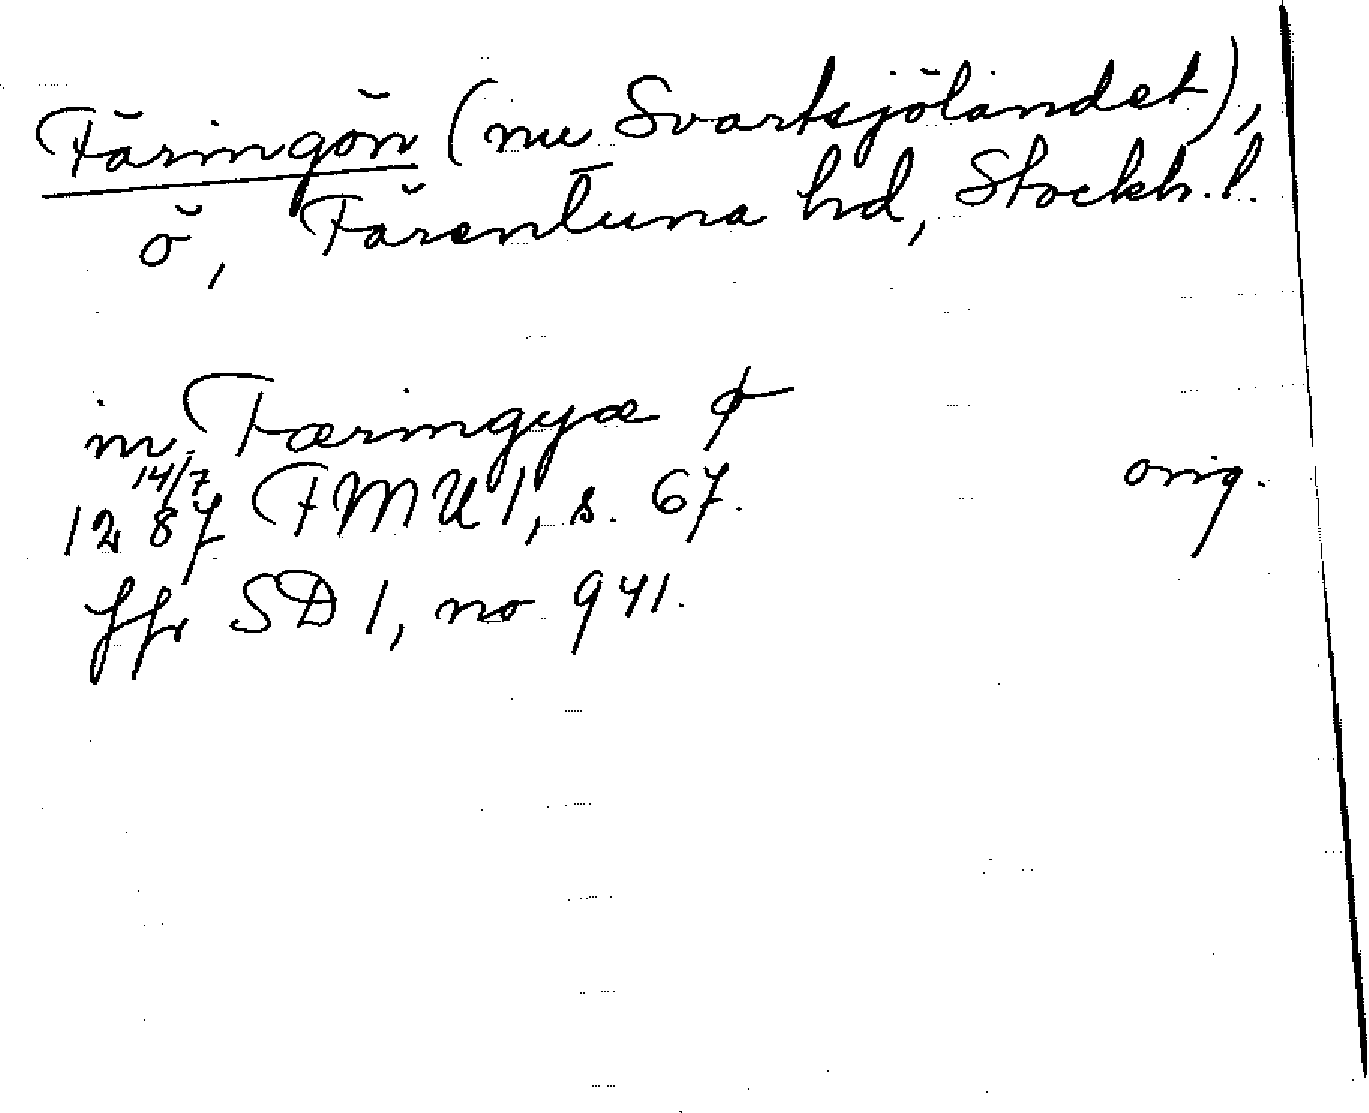 Färingön (nu Svartsjölandet),
ö, Färentuna hd, Stockh. l.
in Færingyæ ɸ
14/7
1287 FMU 1, s. 67. orig.
jfr SD 1, no 941.